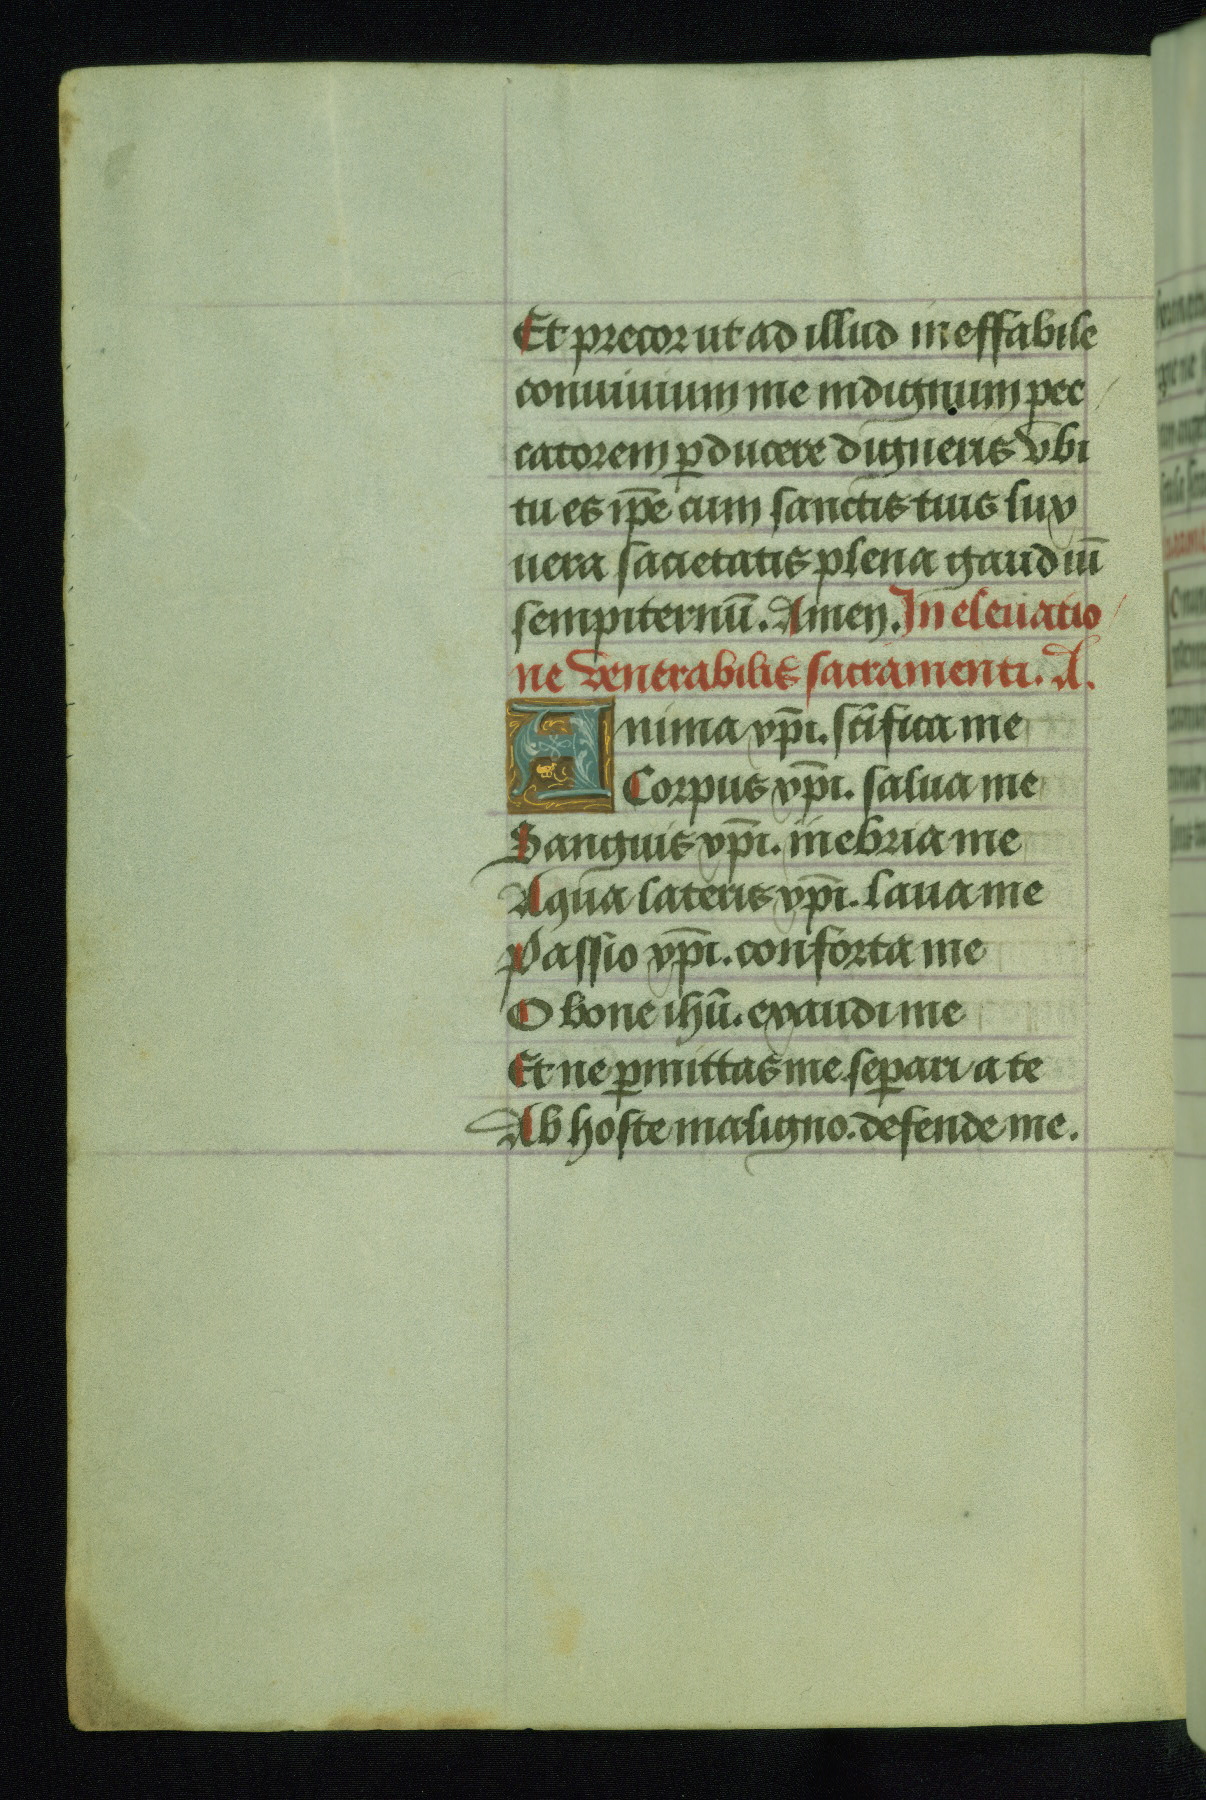 Et precor ut ad illud ineffabile
conuiuium me indignum pec
catorem ꝑducere digneris vbi
tu es ip̄e cum sanctis tuis lux
uera sacietatis plena gaudiū
sempiternū. Amen. In eleuatio
ne venerabilis sacramenti. A.
Anima xp̄i. sc̄ifica me
Corpus xp̄i. salua me
Sanguis xp̄i. inebria me
Aqua lateris xp̄i. laua me
Passio xp̄i. conforta me
O bone ihū. exaudi me
Et ne ꝑmittas me seꝑari a te
Ab hoste maligno. defende me.